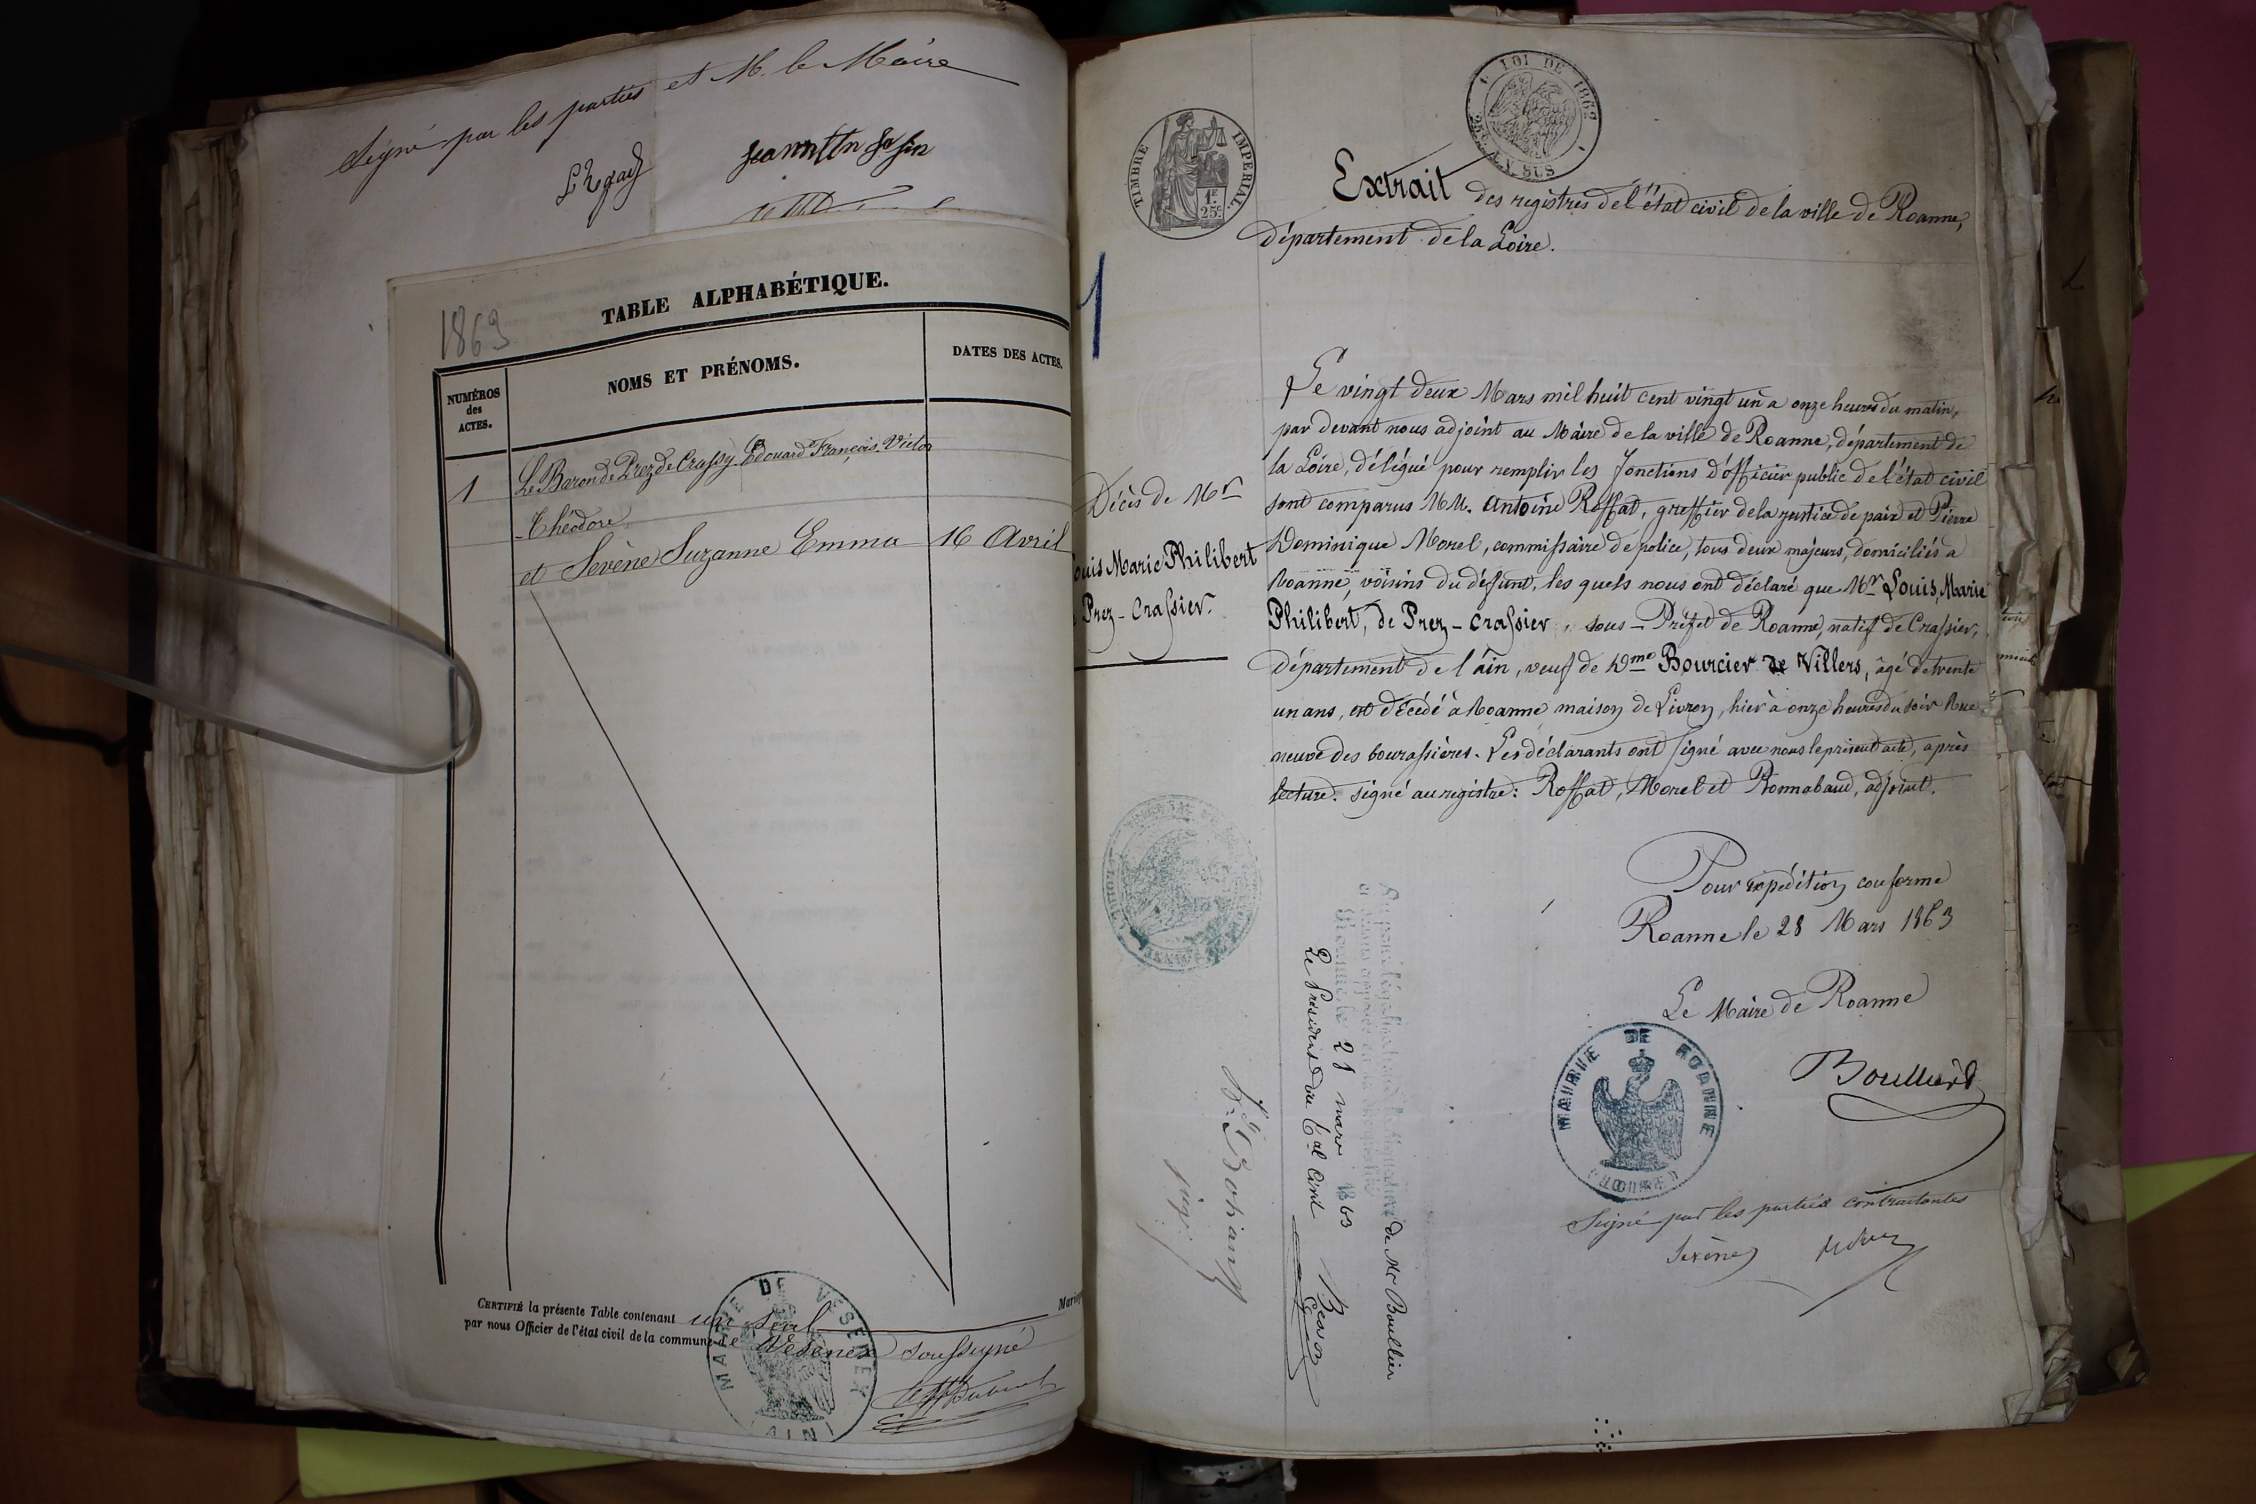 Signé par les parties et M. le Maire
TABLE ALPHABÉTIQUE.
1863
NUMÉROS
des
ACTES.
NOMS ET PRÉNOMS.
DATES DES ACTES.
1
Le Baron de Prez de Crassy Edouard François Victor
Théodore
et Sevène Suzanne Emma
16 Avril
CERTIFIÉ la présente Table contenant un seul Mariage
par nous Officier de l'état civil de la commune de Vesenex soussigné
MAIRIE DE VESENEX
(AIN)
TIMBRE IMPERIAL.
1F
25c.
LOI DE 1862
25c. EN SUS
1
Extrait des registres de l'état civil de la ville de Roanne,
département de la Loire.
Décès de Mr
Louis Marie Philibert
de Prez-Crassier.
Le vingt deux Mars mil huit cent vingt un à onze heures du matin,
par devant nous adjoint au Maire de la ville de Roanne, département de
la Loire, délégué pour remplir les fonctions d'officier public de l'état civil
sont comparus MM. Antoine Roffat, greffier de la justice de paix et Pierre
Dominique Morel, commissaire de police, tous deux majeurs, domiciliés à
Roanne, voisins du défunt, les quels nous ont déclaré que Mr Louis, Marie
Philibert, de Prez-Crassier, sous-Préfet de Roanne, natif de Crassier,
département de l'ain, veuf de Dme Bourcier de Villers, âgé de trente
un ans, est décédé à Roanne, maison de Livron, hier à onze heures du soir Rue
neuve des bourassières. Les déclarants ont signé avec nous le présent acte, après
lecture. signé au registre: Roffat, Morel et Bonnabaud, adjoint.
Pour expédition conforme
Roanne le 28 Mars 1863
Le Maire de Roanne
MAIRIE DE ROANNE
(LOIRE)
Signé par les parties contractantes
Sevène
de Mr Boullier
28 mars 1863
Le Président du Cal Civil